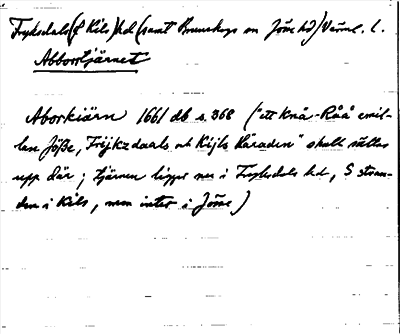 Fryksdals (o Kils) hd (samt Brunskogs sn Jösse hd) Värml. l.
Abborrtjärnet
Aborkiärn 1661 db s. 368 ("ett Knå-Råå emil-
lan Jöße, Frijkzdaals och Kijls Häraden" skall sättas
upp där; tjärnen ligger nu i Fryksdals hd, S stran-
den i Kils, men inte i Jösse)